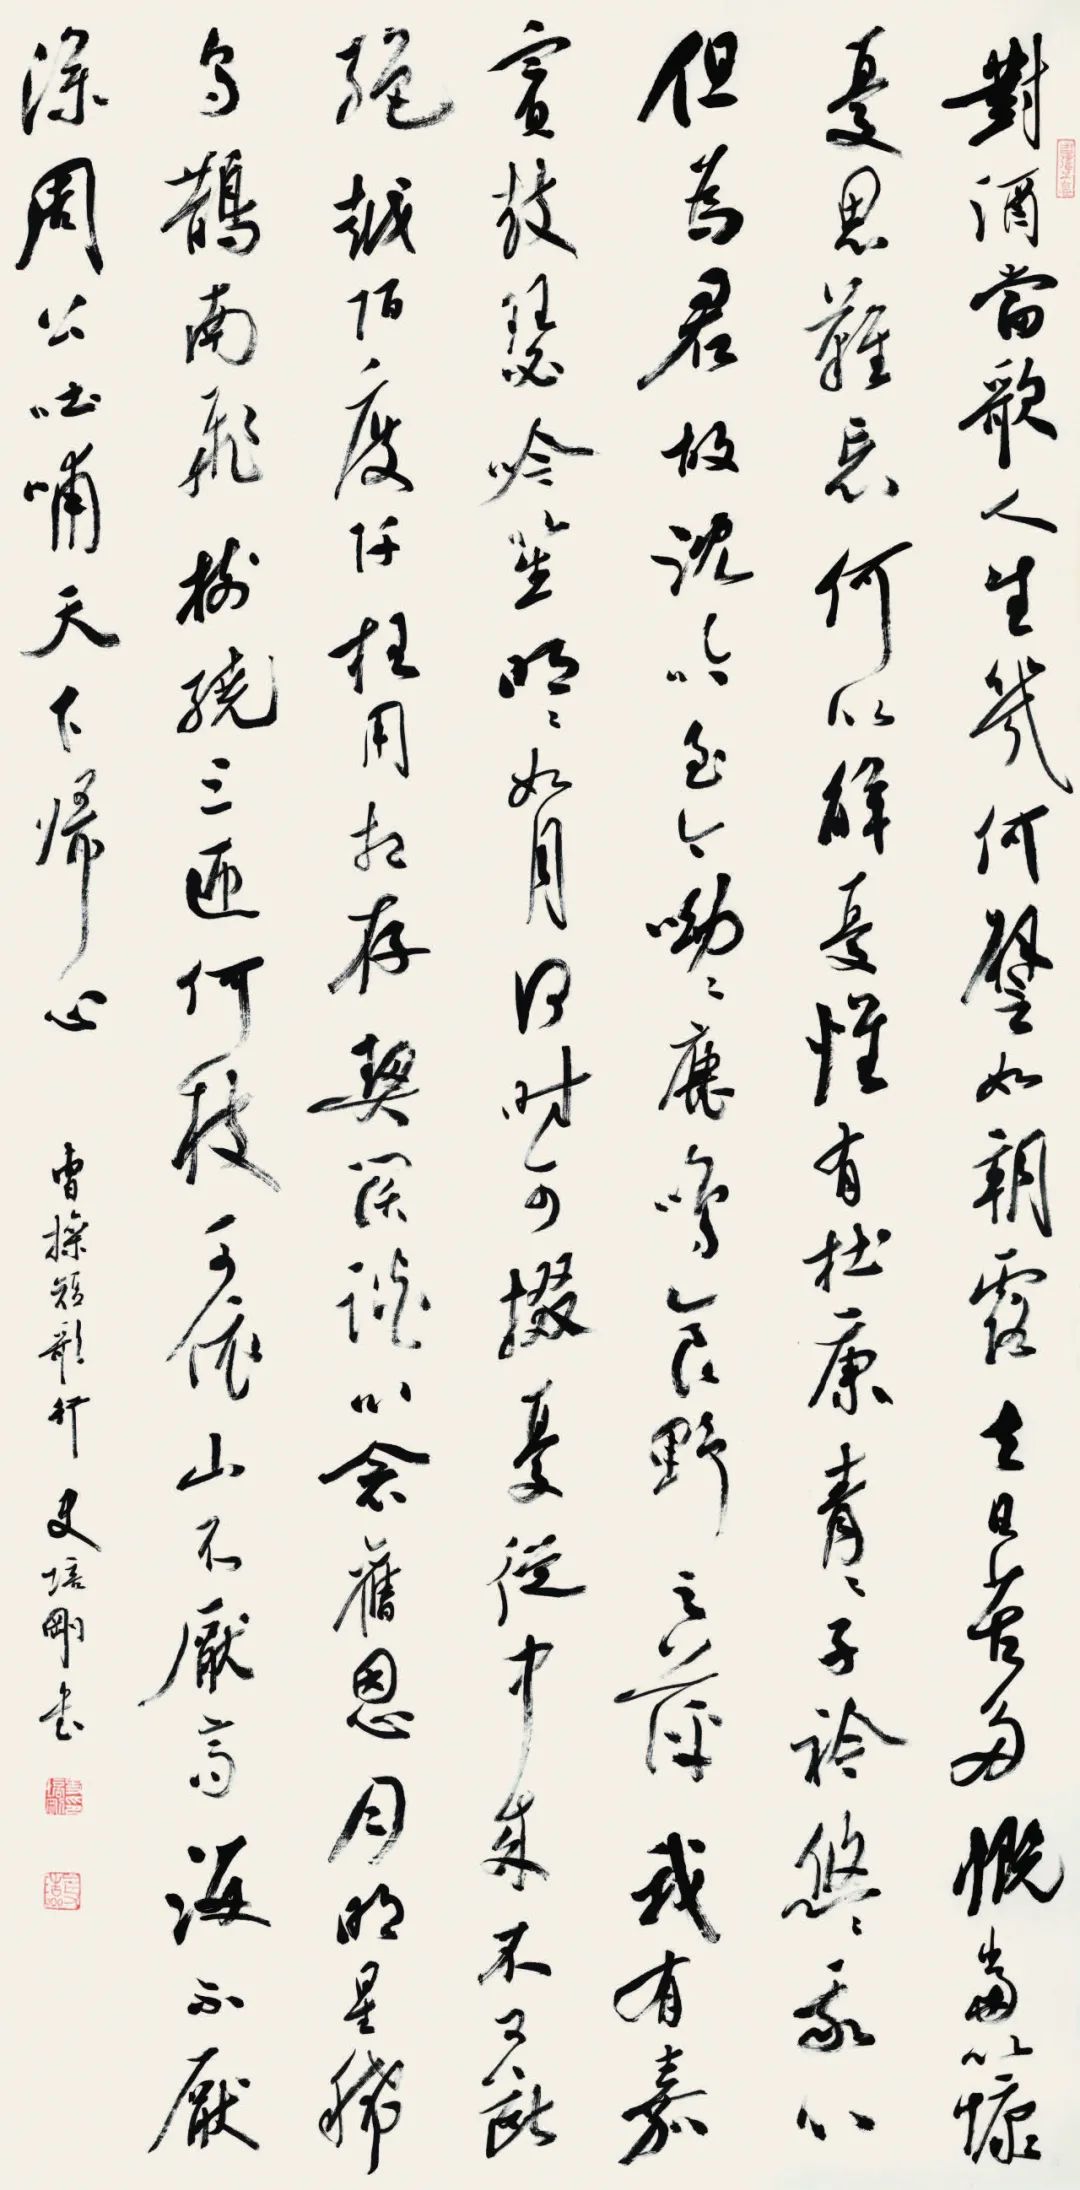 對酒當歌人生幾何譬如朝露去日苦多慨當以慷
憂思難忘何以解憂惟有杜康青〻子衿悠〻我心
但為君故沈吟至今呦〻鹿鳴食野之苹我有嘉
賓鼓瑟吟笙明〻如月何時可掇憂從中來不可斷
絕越陌度阡枉用相存契闊談心念舊恩月明星稀
烏鵲南飛樹繞三匝何枝可依山不厭高海不厭
深周公吐哺天下歸心
曹操短歌行 史培剛書